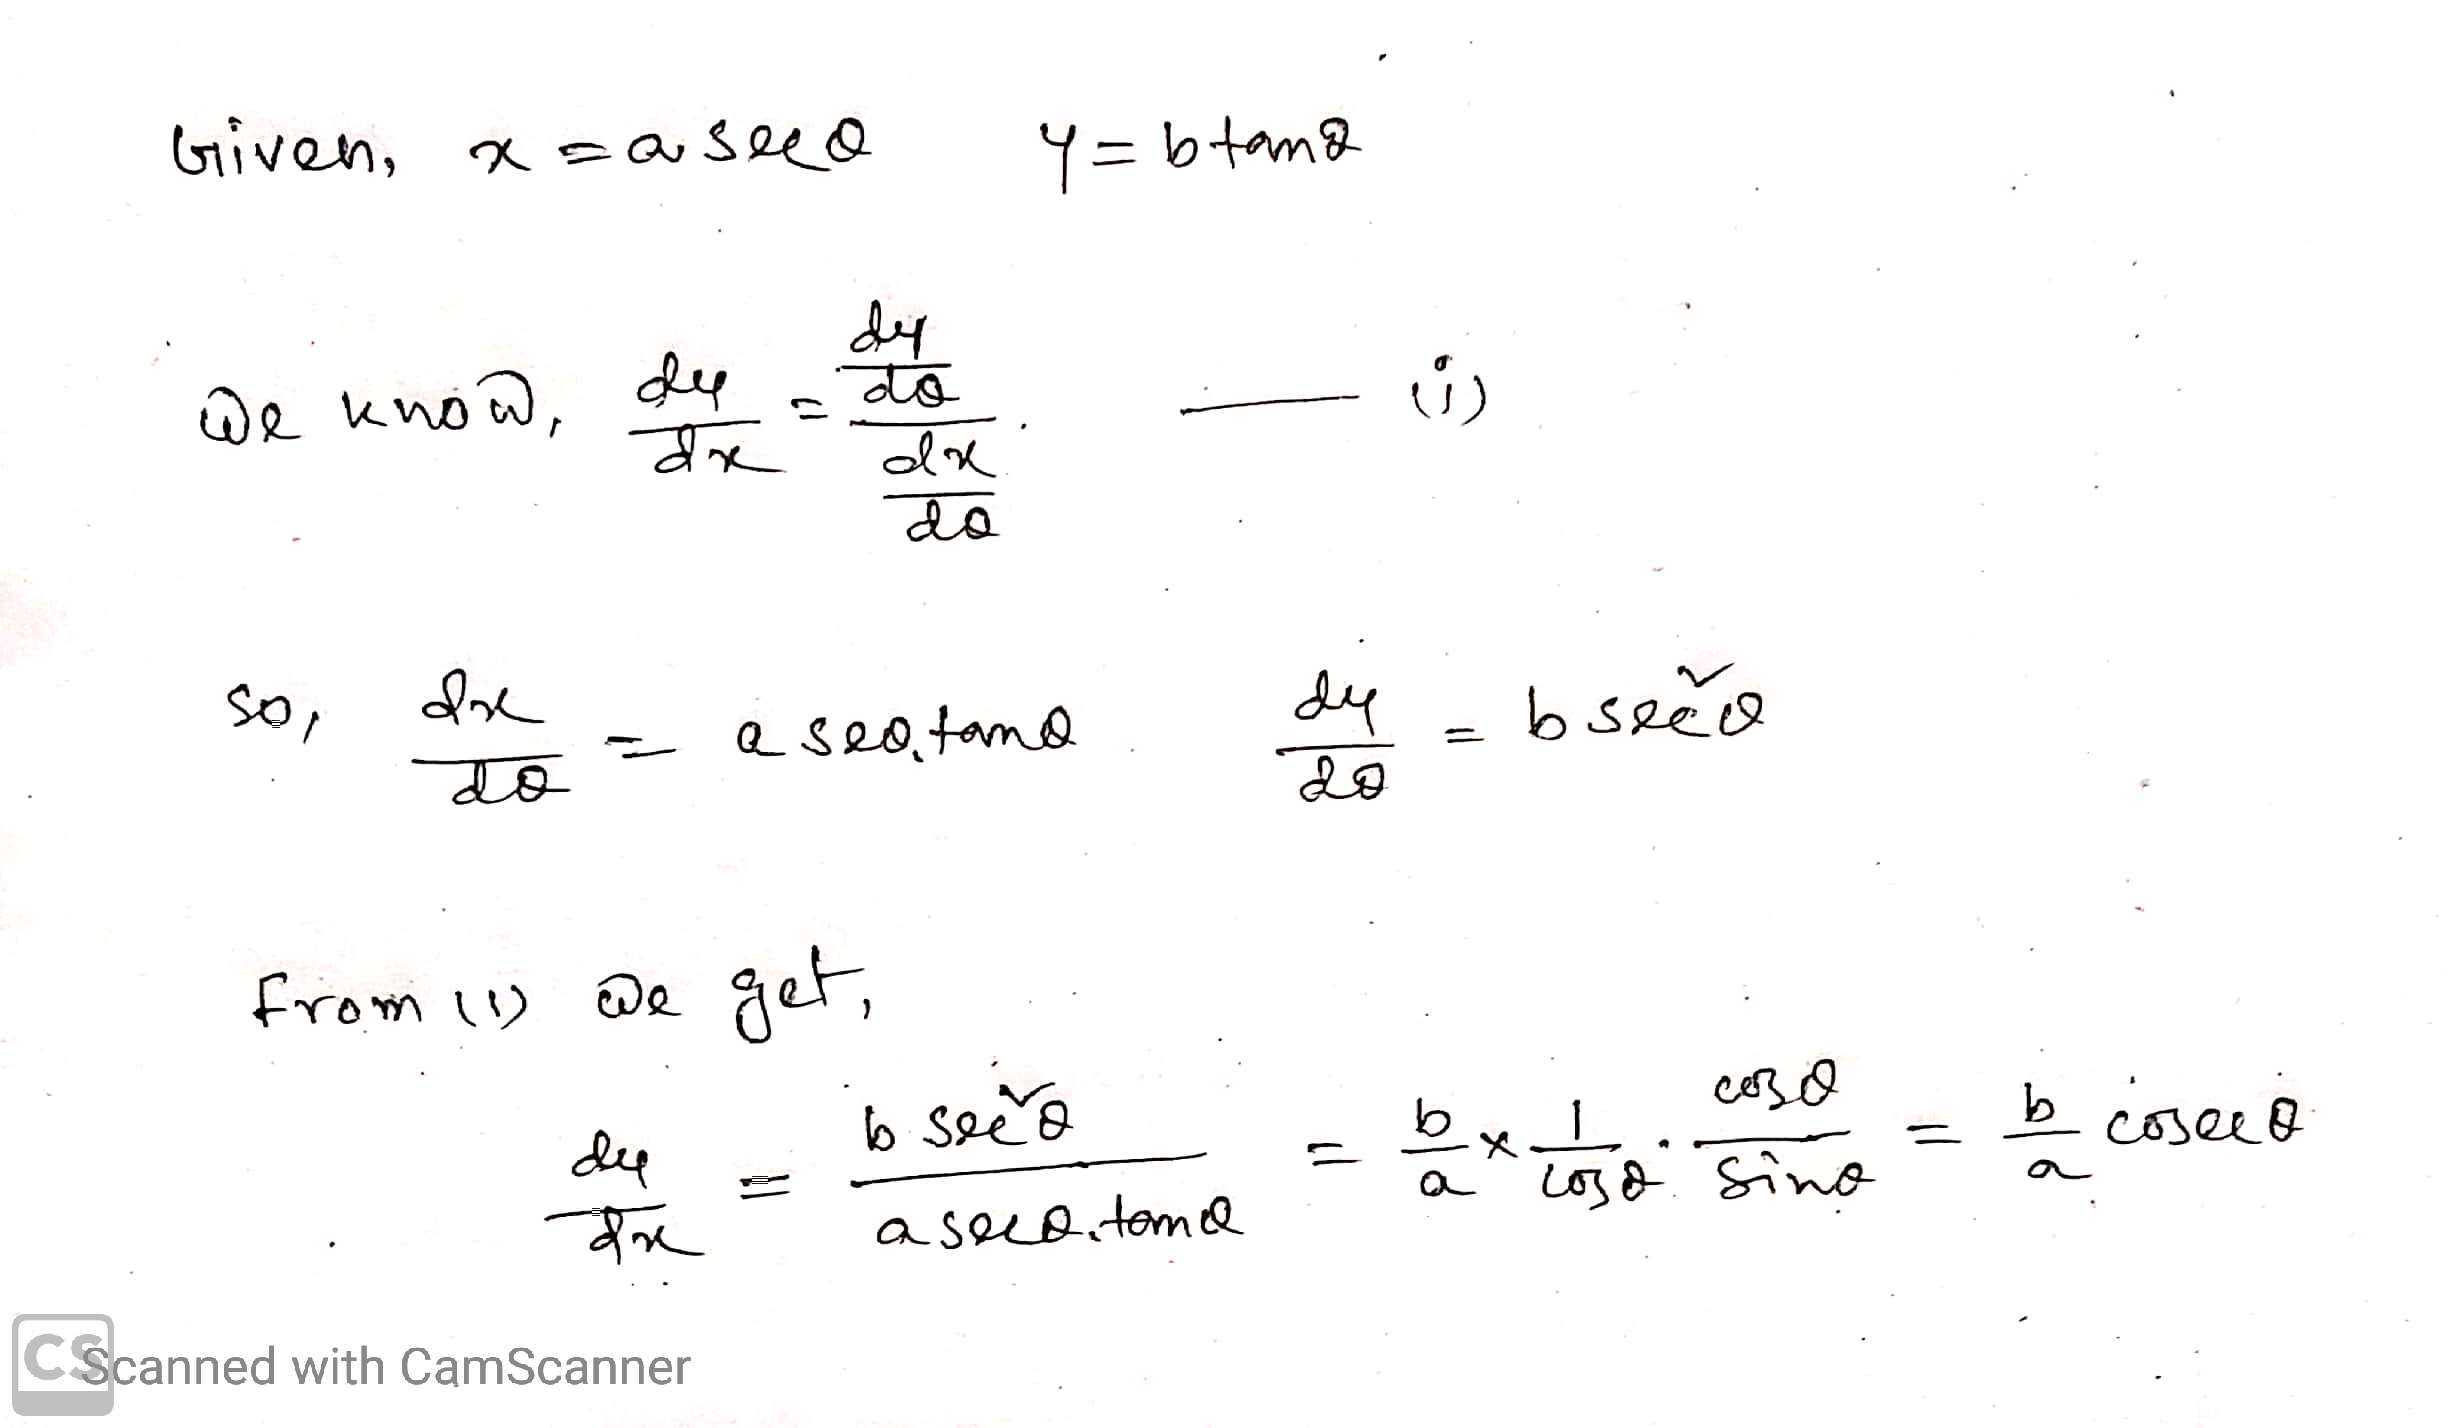 Given, x = a secθ y = b tanθ
We know, dy/dx = (dy/dθ)/(dx/dθ). —— (i)
so, dx/dθ = a seθ.tanθ dy/dθ = b sec²θ
From (i) we get,
dy/dx = b sec²θ/a secθ.tanθ = b/a × 1/cosθ · cosθ/sinθ = b/a cosecθ
CS Scanned with CamScanner